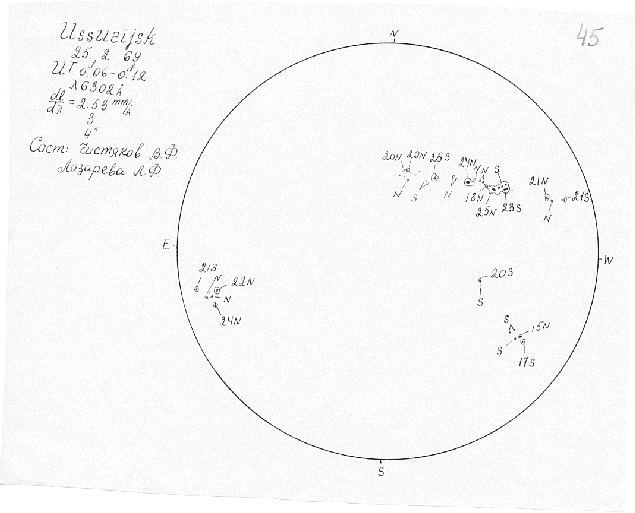 Ussurijsk
25. 2. 69
UT 0.06-0.12
λ 6302 Å
dl/dλ = 2.53 mm/Å
3
4"
Сост: Чистяков В.Ф
Лазарева Л.Ф
45
N
20N 20N 26S 24N 4N S
N S N 18N 25N 23S
21N 21S
N
E
W
21S N 22N
N
24N
20S
S
S 15N
S 17S
S